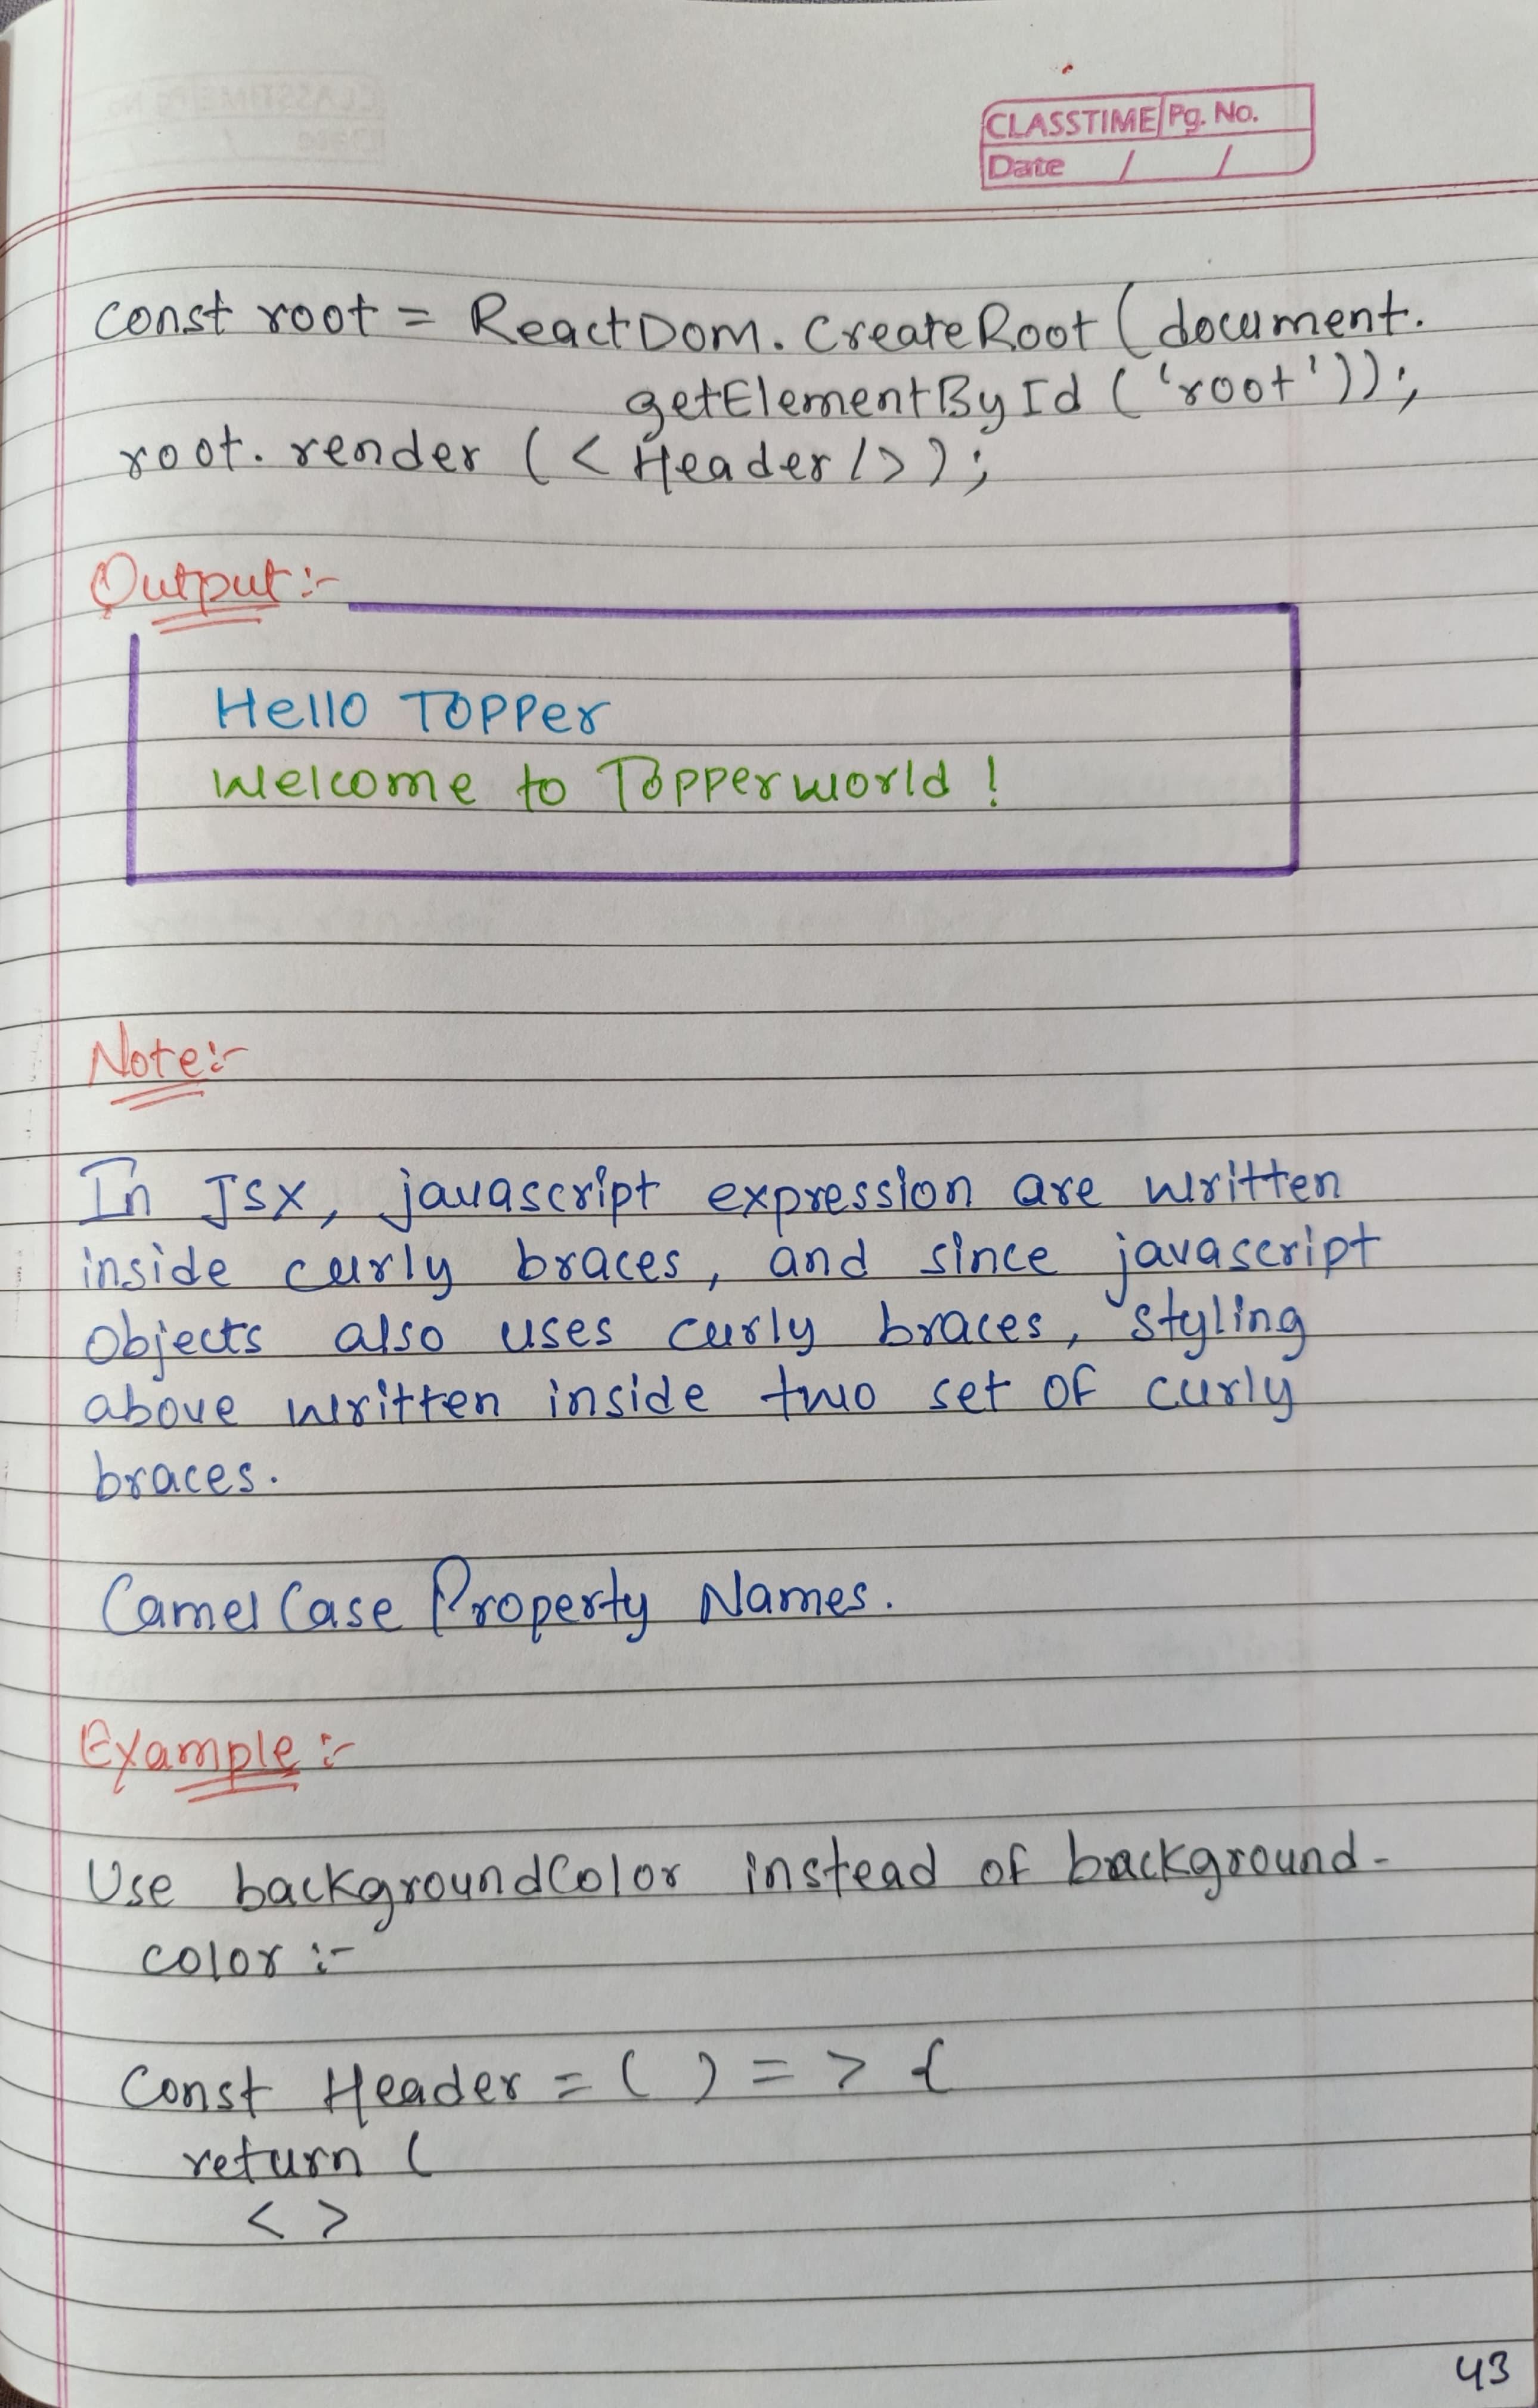 CLASSTIME Pg. No.
Date / /
const root = ReactDom.CreateRoot (document.
getElementById ('root'));
root.render (< Header />);
Output:-
Hello Topper
Welcome to Topperworld !
Note:-
In JSX, javascript expression are written
inside curly braces, and since javascript
objects also uses curly braces, styling
above written inside two set of curly
braces.
Camel Case Property Names.
Example :-
Use backgroundColor instead of background-
color :-
Const Header = ( ) = > {
return (
< >
43